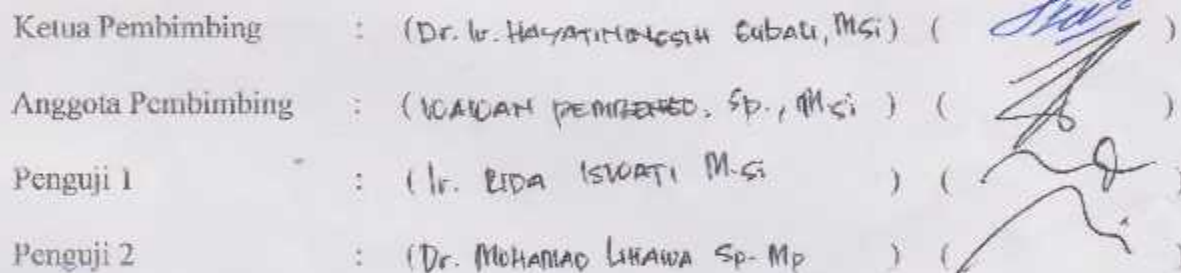 Ketua Pembimbing : (Dr. Ir. HAYATININGSIH GUBALI, MSi) ( )
Anggota Pembimbing : (WAWAN PEMBENGO, Sp., M.Si ) ( )
Penguji 1 : (Ir. RIDA ISWATI M.Si ) ( )
Penguji 2 : (Dr. MOHAMAD LIHAWA Sp. Mp ) (